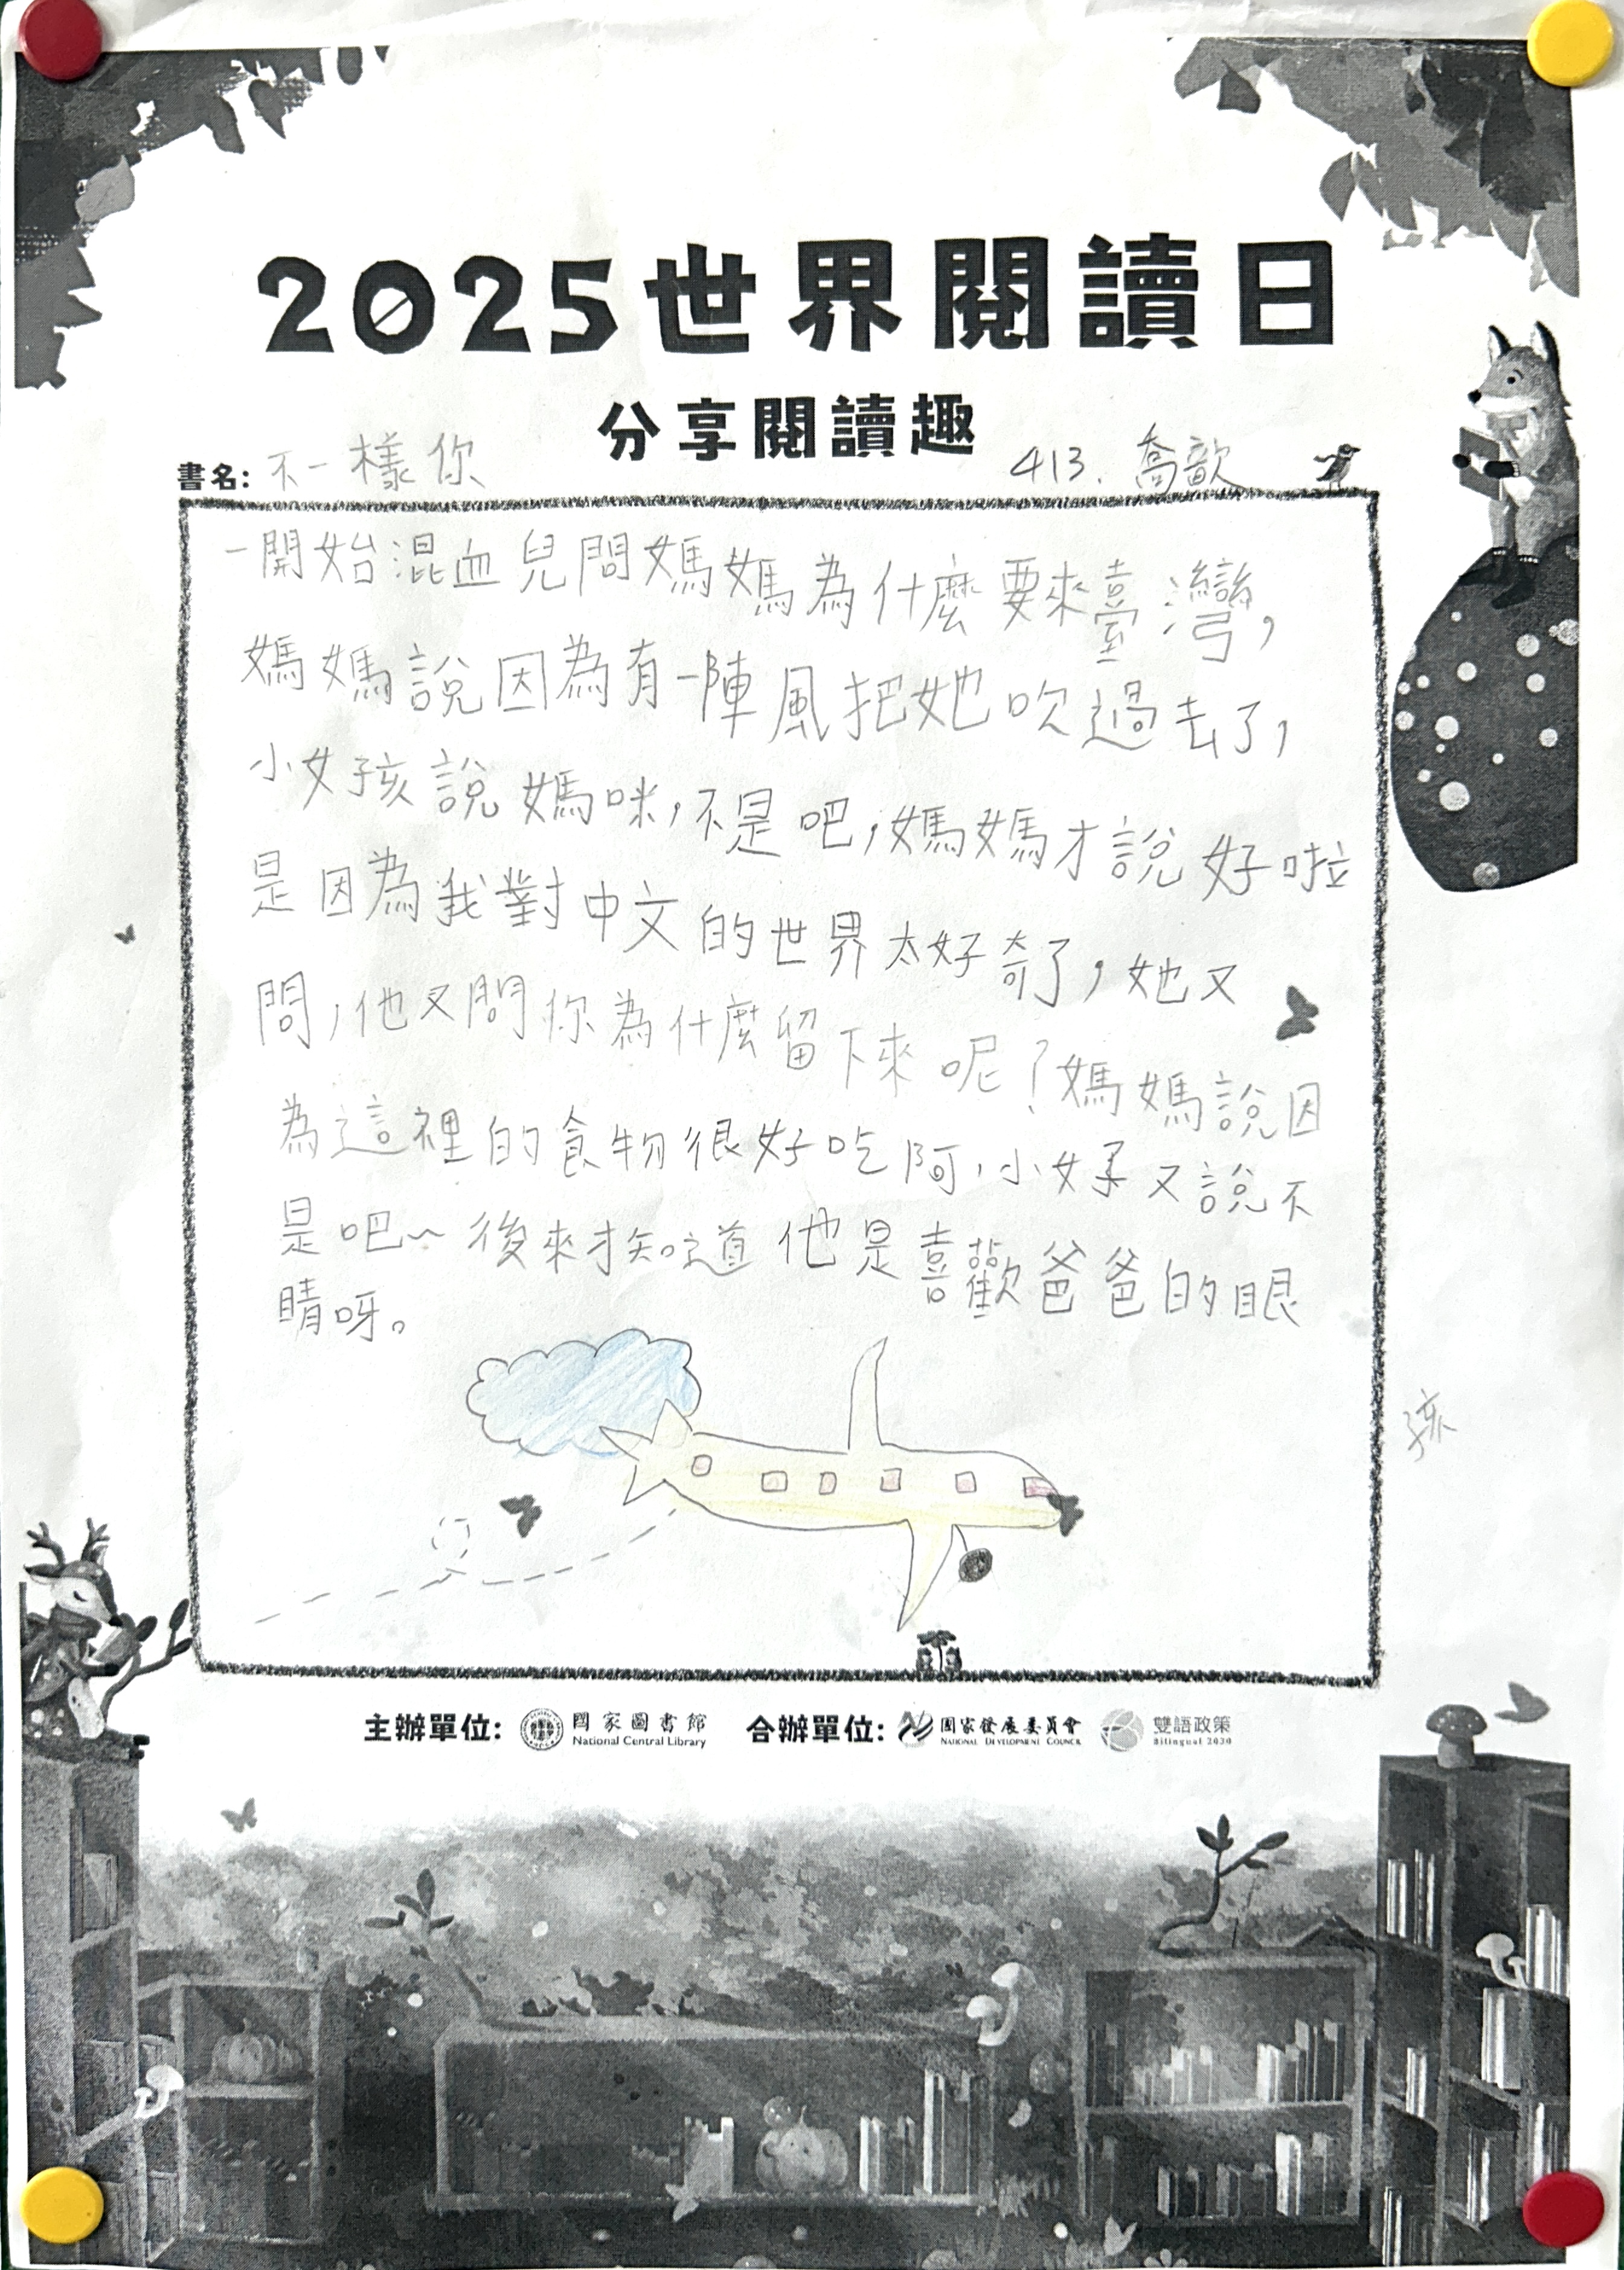 2025世界閱讀日
分享閱讀趣
書名: 不一樣你
413. 喬歆
一開始混血兒問媽媽為什麼要來臺灣,
媽媽說因為有一陣風把她吹過去了,
小女孩說媽咪,不是吧,媽媽才說好啦
是因為我對中文的世界太好奇了,她又
問,他又問你為什麼留下來呢?媽媽說因
為這裡的食物很好吃阿,小女子又說不
是吧~後來才知道他是喜歡爸爸的眼
睛呀。
孩
主辦單位: 國家圖書館
National Central Library
合辦單位: 國家發展委員會
NATIONAL DEVELOPMENT COUNCIL
雙語政策
Bilingual 2030